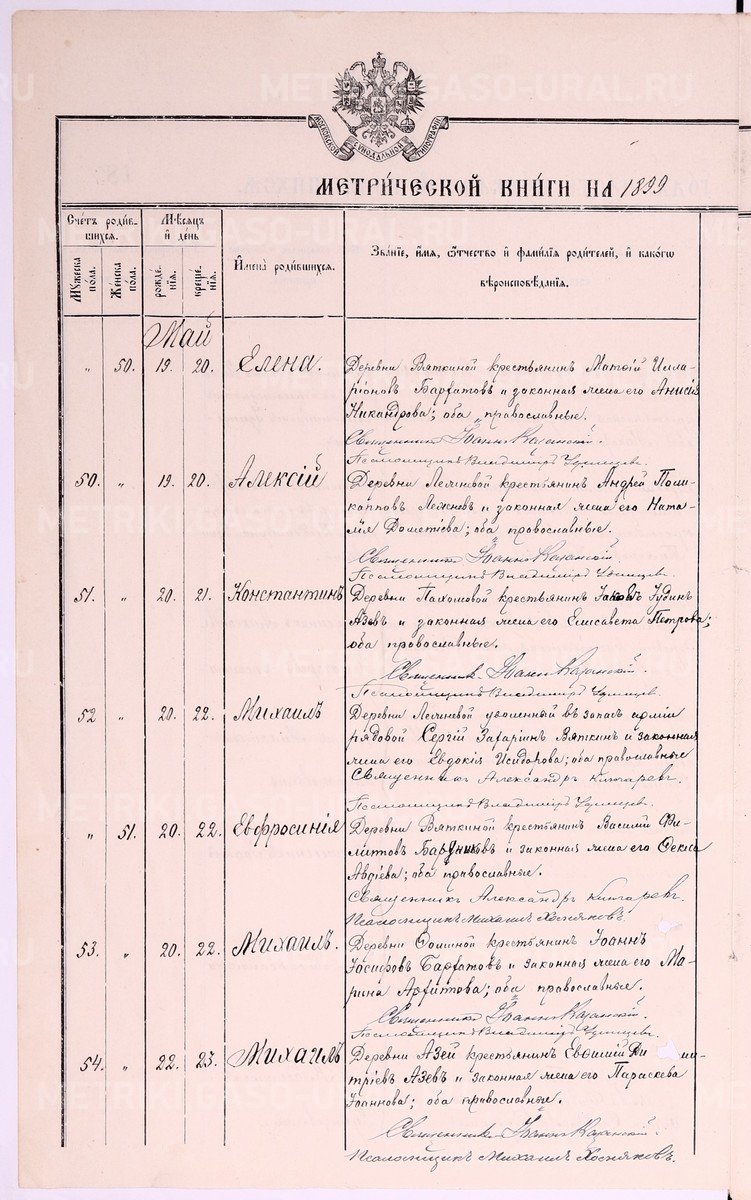 METRIKI.GASO-URAL.RU
МОСКОВСКОЙ СѴНОДАЛЬНОЙ ТИПОГРАФІИ
МЕТРИ́ЧЕСКОЙ КНИ́ГИ НА 1899
Сче́тъ роди́в-
шихся.
Мѣ́сяцъ
и҆ де́нь
Мꙋ́жеска по́ла.
Же́нска по́ла.
рожде́-
нїѧ.
креще́-
нїѧ.
И҆мена̀ роди́вшихся.
Зва́нїе, и҆́мя, ѻ҆́тчество и҆ фами́лїя роди́телей, и҆ како́гѡ
вѣроисповѣ́данїя.
Май
" 50. 19. 20. Елена. Деревни Вяткиной крестьянинъ Матѳій Илла-
ріоновъ Барфатовъ и законная жена его Анисія
Никандрова; оба православные.
Священникъ Іоаннъ Казанскій.
Псаломщикъ Владиміръ Удинцев.
50. " 19. 20. Алексій Деревни Лежневой крестьянинъ Андрей Поли-
карповъ Лежневъ и законная жена его Ната-
лія Дометіева; оба православные.
Священникъ Іоаннъ Казанскій.
Псаломщикъ Владиміръ Удинцев.
51. " 20. 21. Константинъ Деревни Пахомовой крестьянинъ Іаковъ Іудинъ
Азевъ и законная жена его Елисавета Петрова;
оба православные.
Священник Іоаннъ Казанскій.
Псаломщикъ Владиміръ Удинцев.
52 " 20. 22. Михаилъ Деревни Лежневой уволенный въ запас арміи
рядовой Сергій Захаринъ Вяткинъ и законная
жена его Евдокія Исидорова; оба православные
Священникъ Александръ Ключаревъ.
Псаломщикъ Владиміръ Удинцев.
" 51. 20. 22. Евфросинія Деревни Вяткиной крестьянинъ Василій Фи-
липповъ и законная жена его Ѳекла
Авдіева; оба православные.
Священникъ Александръ Ключаревъ.
Псаломщикъ Михаилъ Хосняковъ.
53. " 20. 22. Михаилъ. Деревни Ѳоминой крестьянинъ Іоаннъ
Іосифовъ Барфатовъ и законная жена его Ма-
рина Архипова; оба православные.
Священникъ Іоаннъ Казанскій.
Псаломщикъ Владиміръ Удинцев.
54. " 22. 23. Михаилъ Деревни Азей крестьянинъ Евѳимій Ди-ми-
тріевъ Азевъ и законная жена его Параскева
Іоаннова; оба православные.
Священникъ Іоаннъ Казанскій.
Псаломщикъ Михаилъ Хосняковъ.